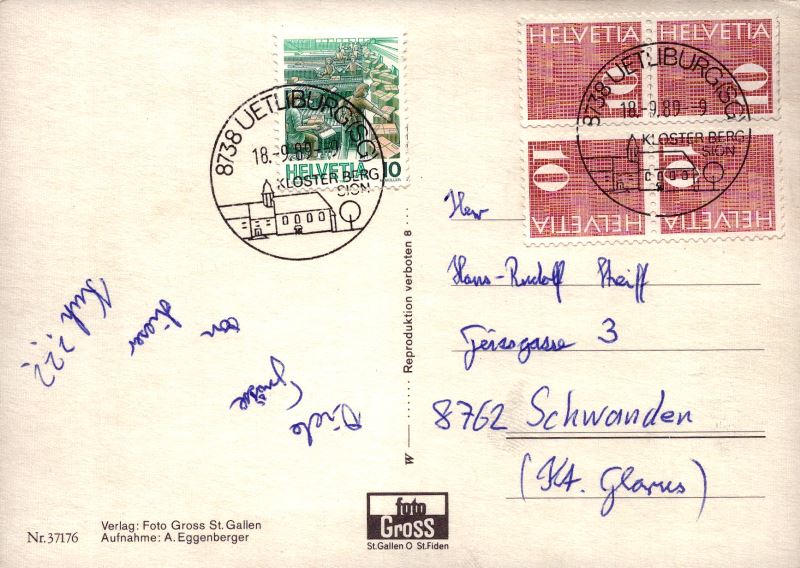 HELVETIA 10
8738 UETLIBURG (SG)
18.-9.89.-9
KLOSTER BERG
SION
HELVETIA HELVETIA
10 10
8738 UETLIBURG (SG)
18.-9.89.-9
KLOSTER BERG
SION
10 10
HELVETIA HELVETIA
Viele
Grüsse
von
dieser
Kuh ???
W — ...... Reproduktion verboten 8 ......
Herr
Hans-Rudolf Streiff
Geissgasse 3
8762 Schwanden
(Kt. Glarus)
Nr. 37176
Verlag: Foto Gross St. Gallen
Aufnahme: A. Eggenberger
foto
Gross
St. Gallen O St. Fiden